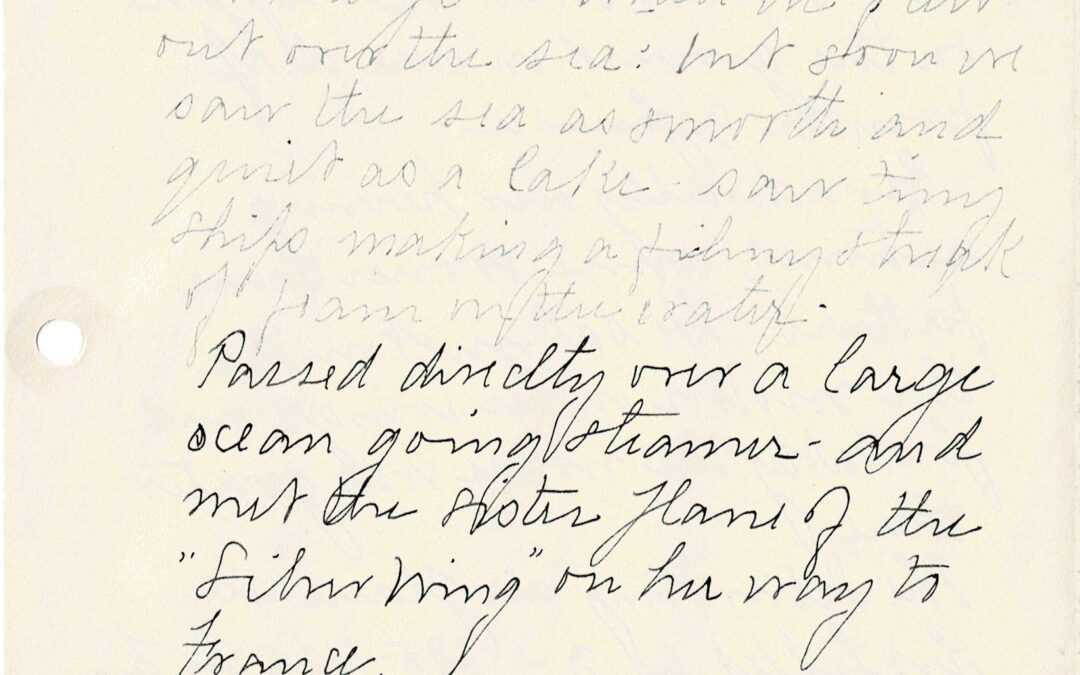 out over the sea: but soon we
saw the sea as smooth and
quiet as a lake - saw tiny
ships making a filmy streak
of foam in the water.
Passed directly over a large
ocean going steamer - and
met the sister plane of the
"Silver Wing" on her way to
France.